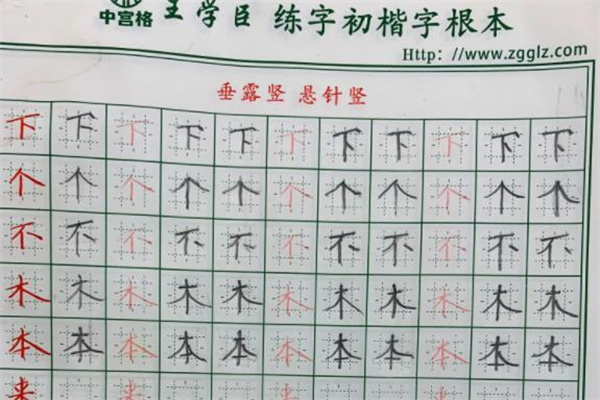 中宫格 王学臣 练字初楷字根本
Http: //www.zgglz.com
垂露竖 悬针竖
下下下下下下下下下下下
个个个个个个个个个个个
不不不不不不不不不不不
木木木木木木木木木木木
本本本本本本本本本本本